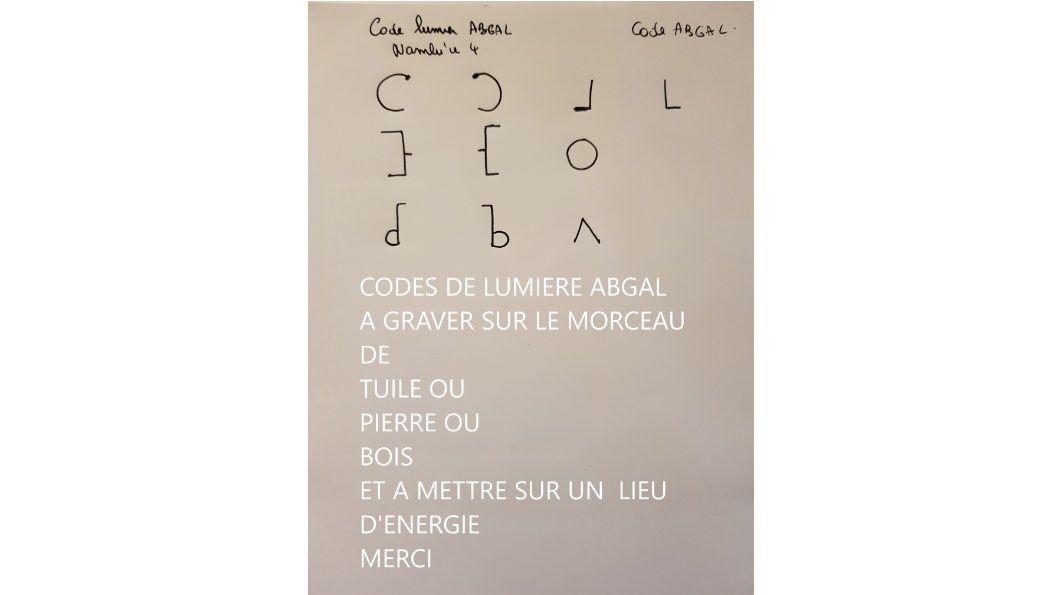 Code lumier ABGAL
Code ABGAL.
Namlu'u 4
CODES DE LUMIERE ABGAL
A GRAVER SUR LE MORCEAU
DE
TUILE OU
PIERRE OU
BOIS
ET A METTRE SUR UN LIEU
D'ENERGIE
MERCI